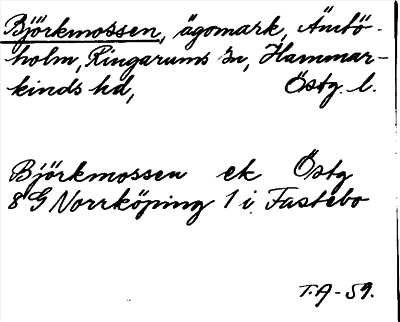 Björkmossen, ägomark, Ämtö-
holm, Ringarums sn, Hammar-
kinds hd, Östg. l.
Björkmossen ek Östg
8 G Norrköping 1 i Fastebo
T.A-59.